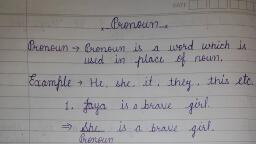 DATE
Pronoun
Pronoun → Pronoun is a word which is
used in place of noun.
Example → He, she, it, they, this etc.
1. Jaya is a brave girl.
⇒ She is a brave girl.
Pronoun